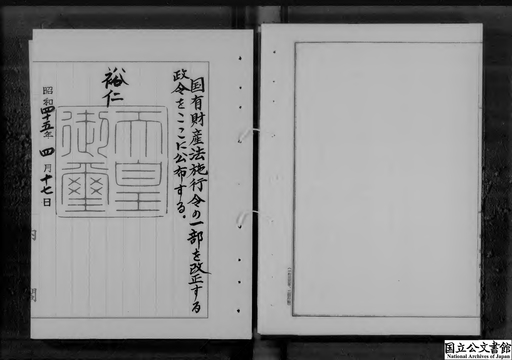 国有財産法施行令の一部を改正する
政令をここに公布する。
裕仁
天皇
御璽
昭和四十五年四月十七日
内閣
国立公文書館
National Archives of Japan